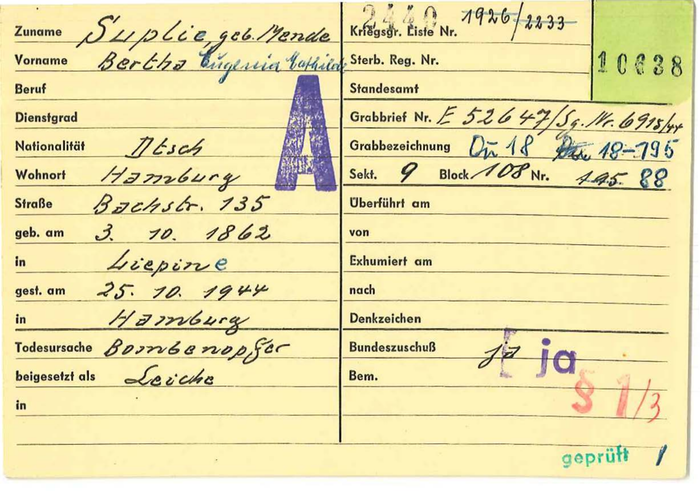 Zuname Suplie, geb. Mende
Vorname Bertha Eugenia Mathilde
Beruf
Dienstgrad
Nationalität Dtsch
Wohnort Hamburg
Straße Bachstr. 135
geb. am 3. 10. 1862
in Liepine
gest. am 25. 10. 1944
in Hamburg
Todesursache Bombenopfer
beigesetzt als Leiche
in
A
2440 1926/2233
Kriegsgr. Liste Nr.
Sterb. Reg. Nr.
10638
Standesamt
Grabbrief Nr. E 52647/Sg. Nr. 6915/44
Grabbezeichnung Qu 18 18-195
Sekt. 9 Block 108 Nr. 195 88
Überführt am
von
Exhumiert am
nach
Denkzeichen
Bundeszuschuß ja ja
Bem.
§ 1/3
geprüft